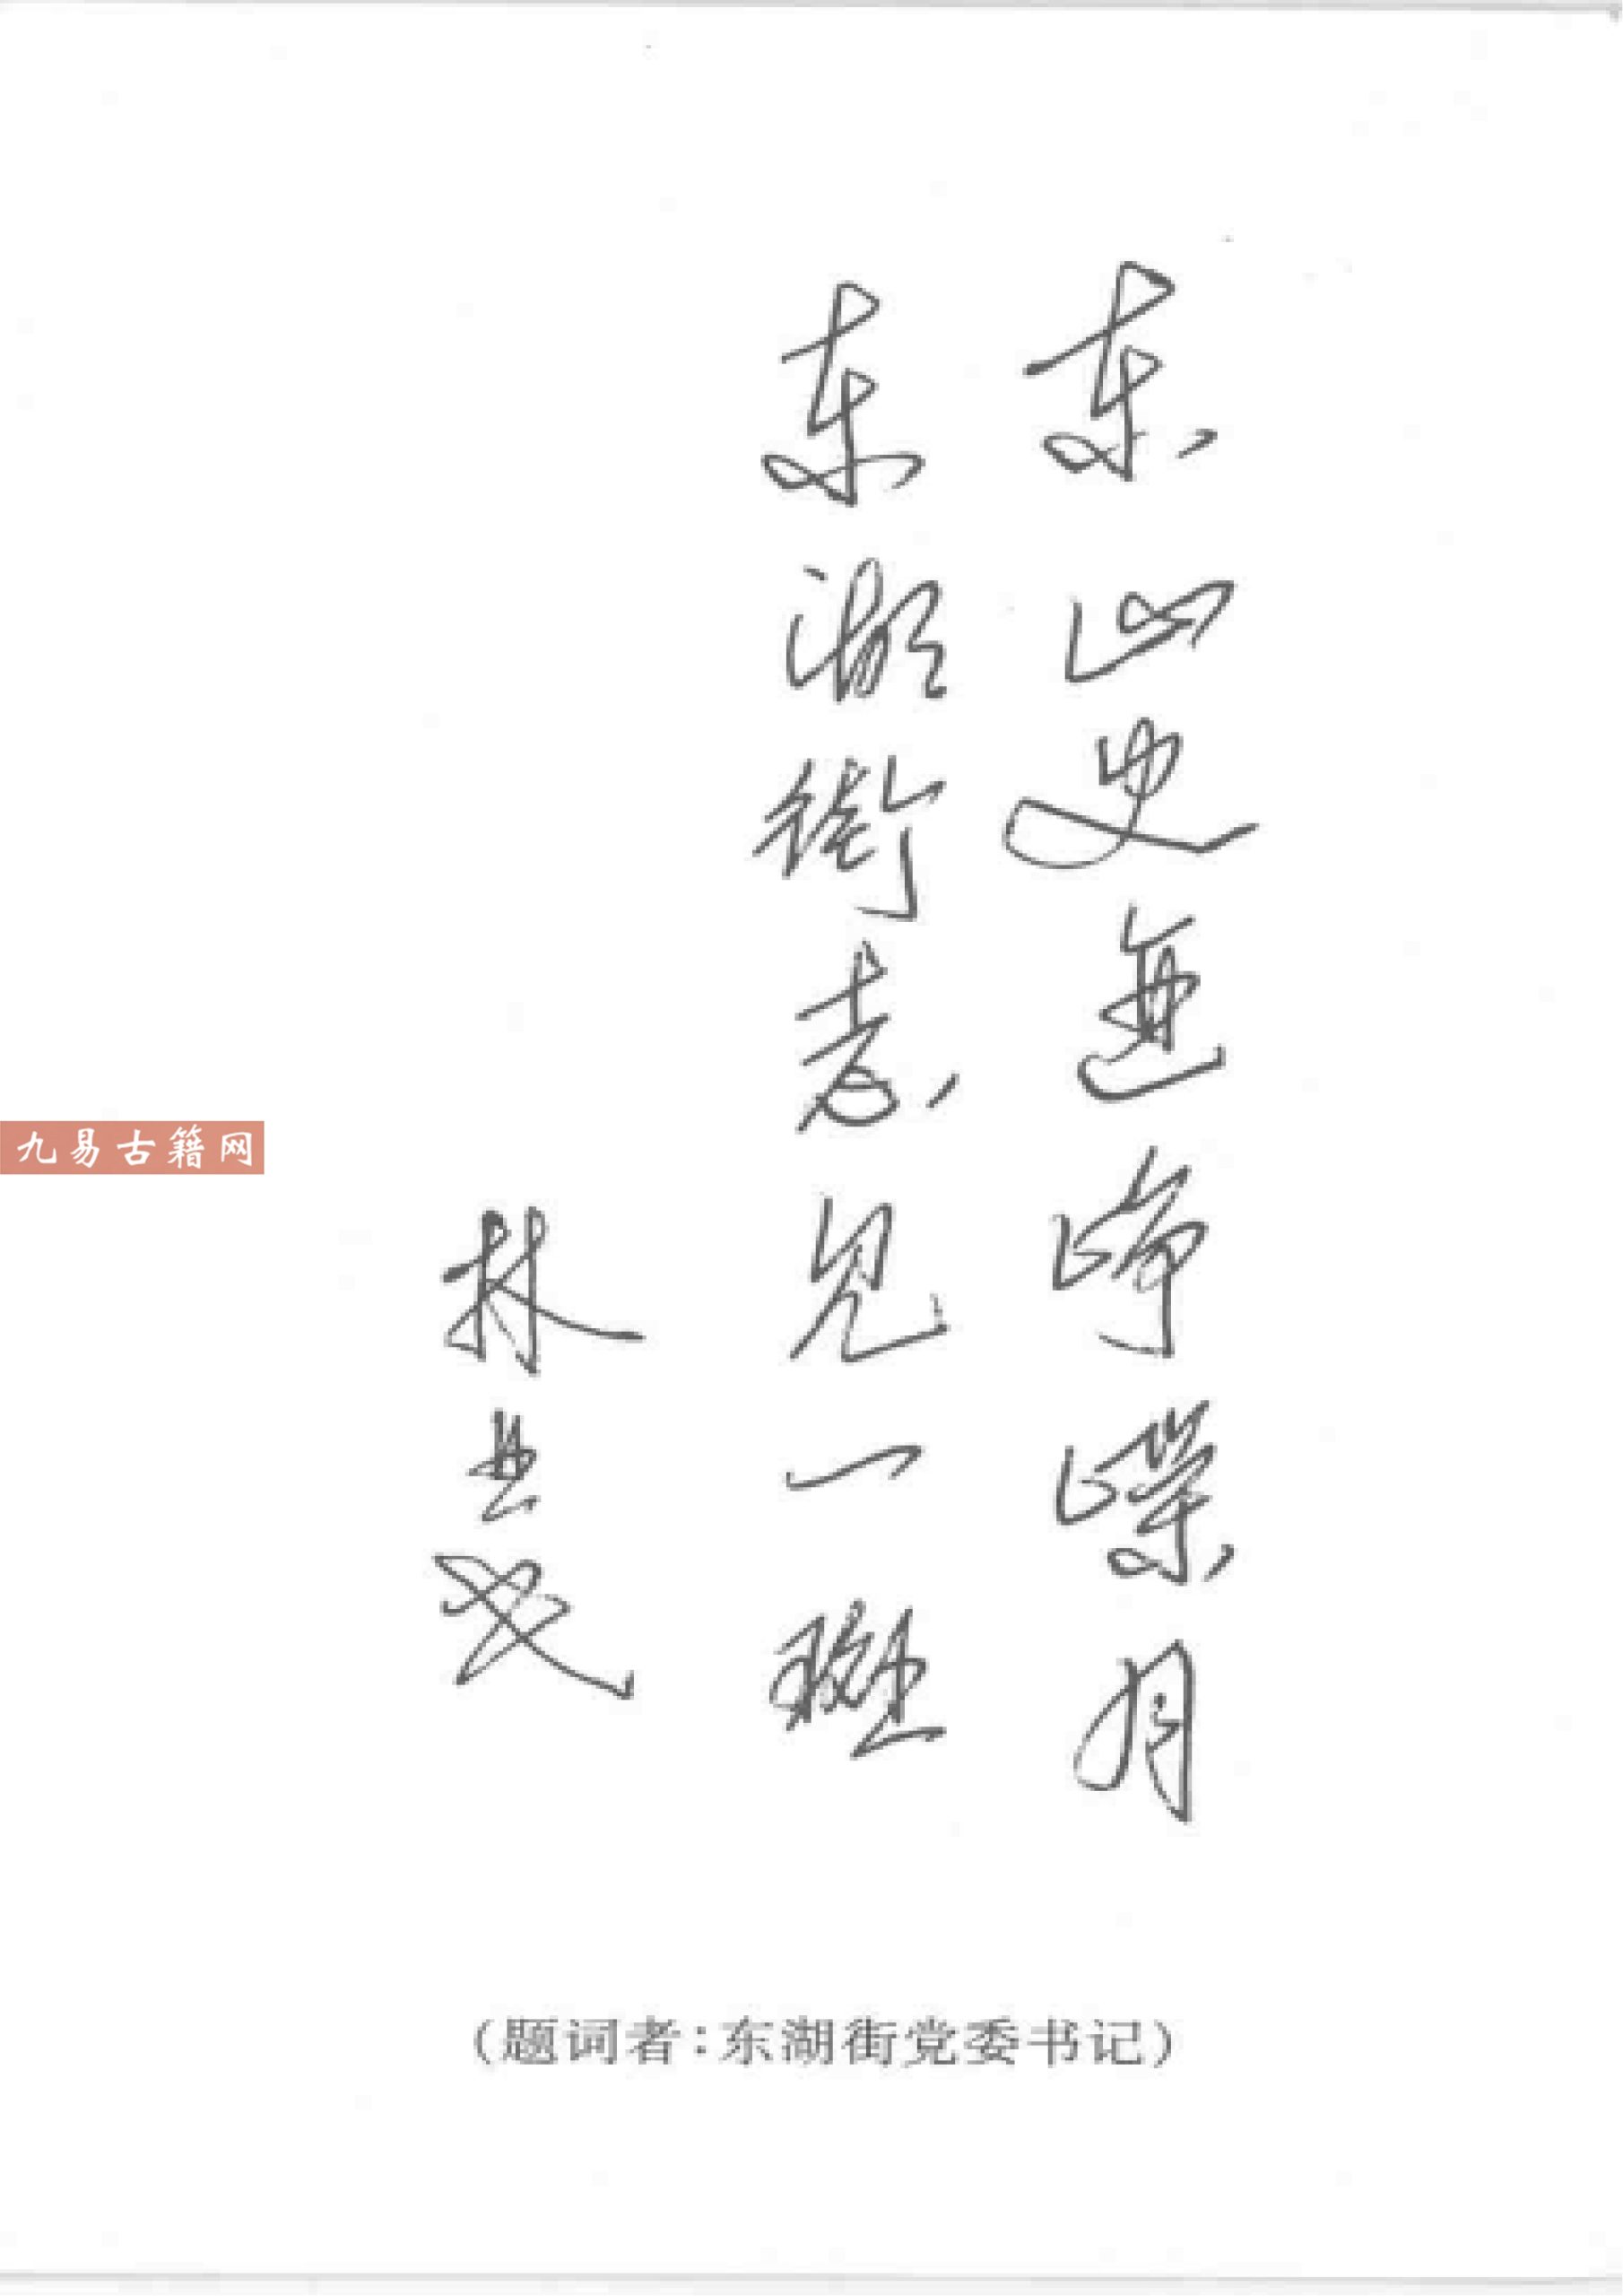 东山史迹峥嵘月
东湖街志见一斑
林
(题词者:东湖街党委书记)
九易古籍网